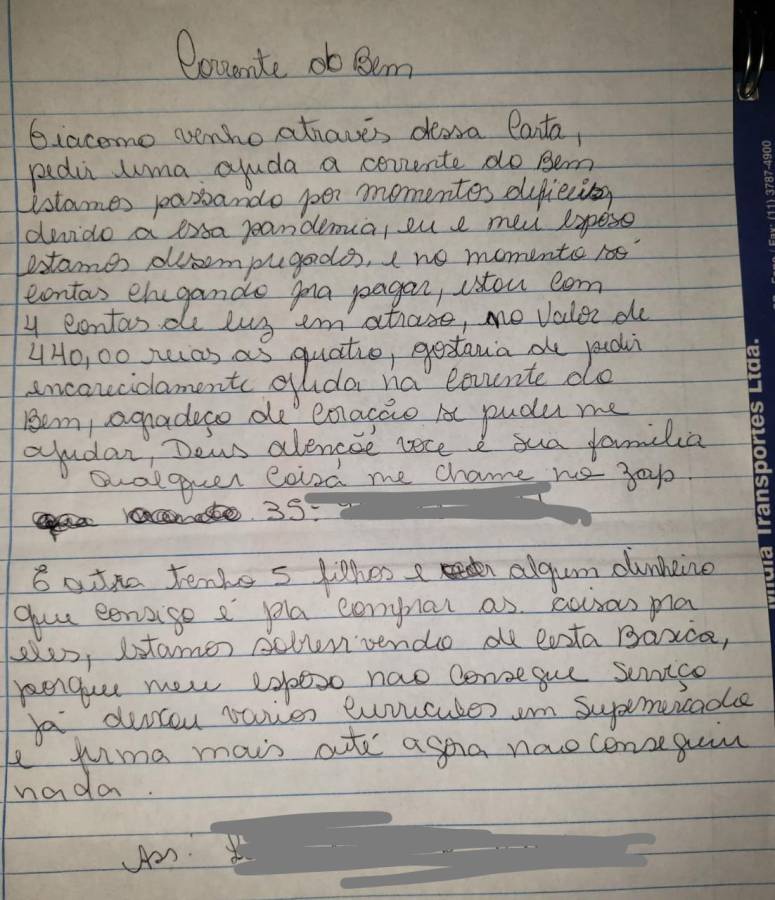 Corrente do Bem
Giacomo venho através dessa Carta,
pedir uma ajuda a corrente do Bem
estamos passando por momentos
devido a essa pandemia, eu e meu esposo
estamos desempregados, e no momento só
contas chegando pra pagar, estou com
4 contas de luz em atraso, no Valor de
440,00 reias as quatro, gostaria de pedir
encarecidamente ajuda na Corrente do
Bem, agradeço de coração se puder me
ajudar, Deus abençõe voce e sua familia
Qualquer coisa me chame no zap.
35:
E outra tenho 5 filhos e algum dinheiro
que consigo é pra comprar as coisas pra
eles, estamos sobrevivendo de cesta Basica,
porque meu esposo nao consegue serviço
já deixou varios curriculos em Supermercado
e firma mais até agora nao conseguiu
nada.
Ass:
Mídia Transportes Ltda.
Fax: (11) 3787-4900